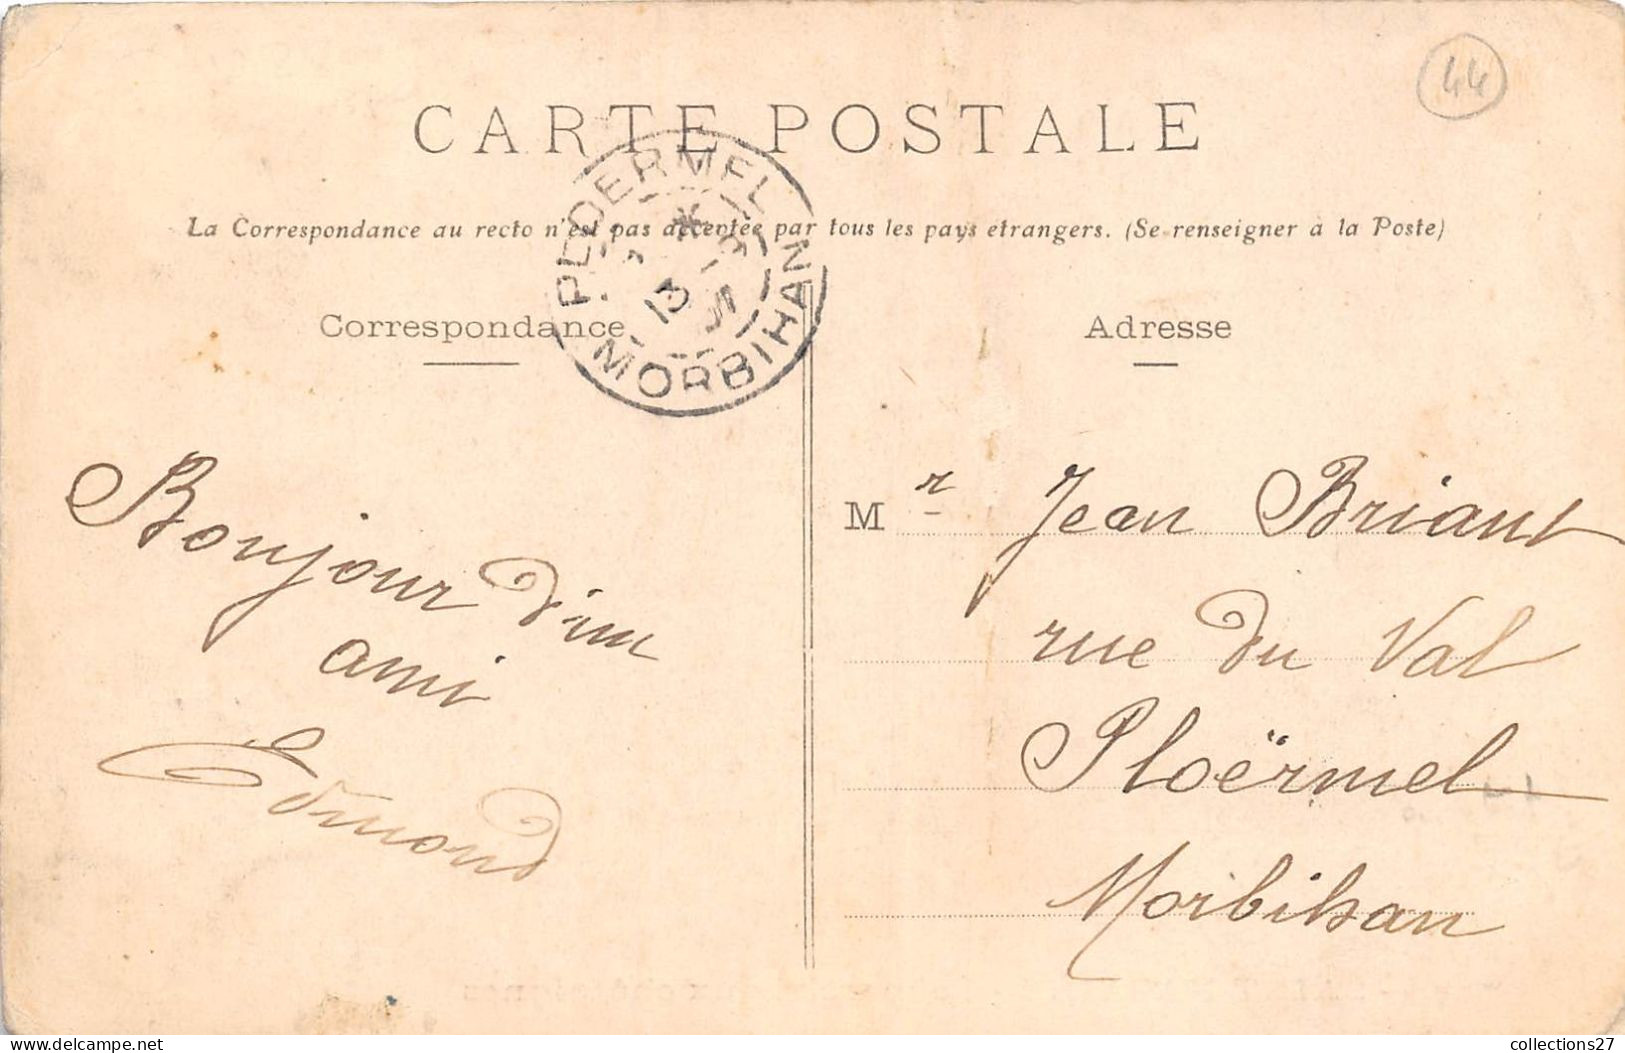 44
CARTE POSTALE
La Correspondance au recto n'est pas acceptée par tous les pays etrangers. (Se renseigner à la Poste)
PLOERMEL
13
MORBIHAN
Correspondance
Adresse
Bonjour d'un
ami
Edmond
M r Jean Briant
rue du Val
Ploërmel
Morbihan
collections27